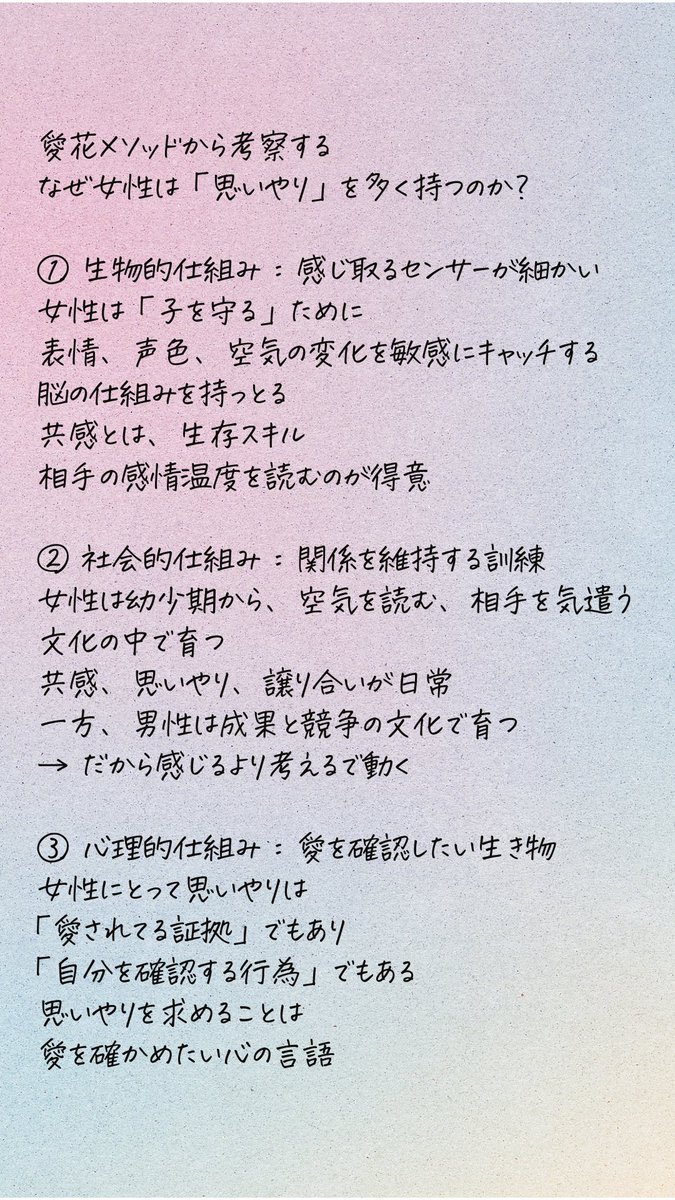 愛花メソッドから考察する
なぜ女性は「思いやり」を多く持つのか?
① 生物的仕組み : 感じ取るセンサーが細かい
女性は「子を守る」ために
表情、声色、空気の変化を敏感にキャッチする
脳の仕組みを持っとる
共感とは、生存スキル
相手の感情温度を読むのが得意
② 社会的仕組み : 関係を維持する訓練
女性は幼少期から、空気を読む、相手を気遣う
文化の中で育つ
共感、思いやり、譲り合いが日常
一方、男性は成果と競争の文化で育つ
→ だから感じるより考えるで動く
③ 心理的仕組み : 愛を確認したい生き物
女性にとって思いやりは
「愛されてる証拠」でもあり
「自分を確認する行為」でもある
思いやりを求めることは
愛を確かめたい心の言語